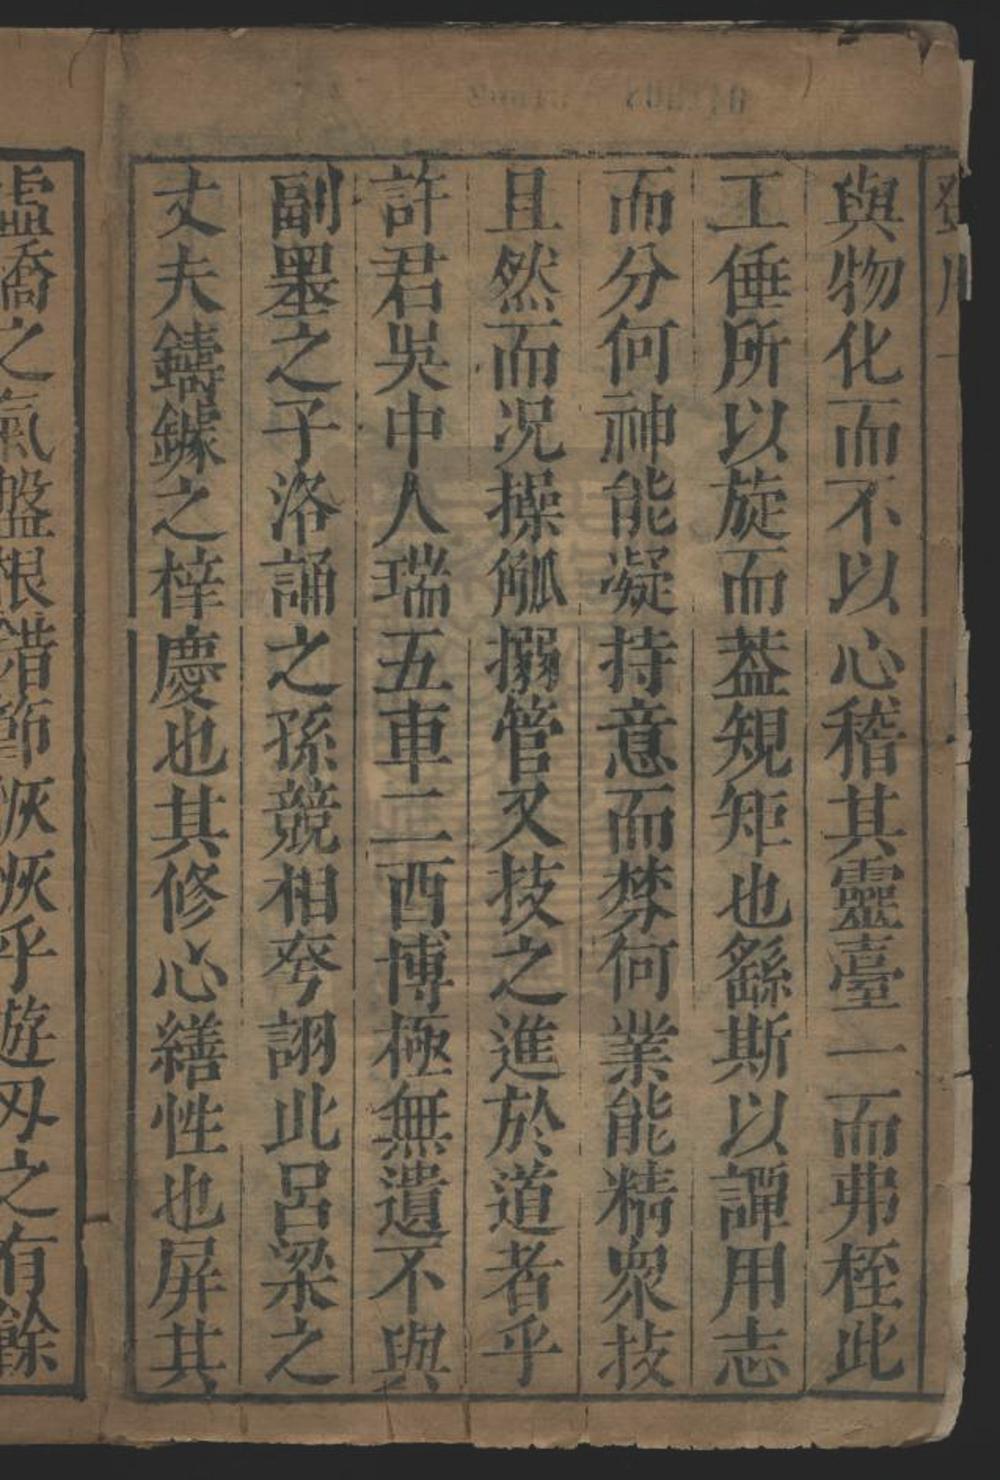 與物化而不以心稽其靈臺一而弗桎此
工倕所以旋而蓋規矩也繇斯以譚用志
而分何神能凝持意而棼何業能精衆技
且然而况操觚搦管又技之進於道者乎
許君吳中人瑞五車二酉博極無遺不與
副墨之子洛誦之孫競相夸詡此呂梁之
丈夫鑄鐻之梓慶也其修心繕性也屏其
虛憍之氣盤根錯節恢恢乎遊刃之有餘